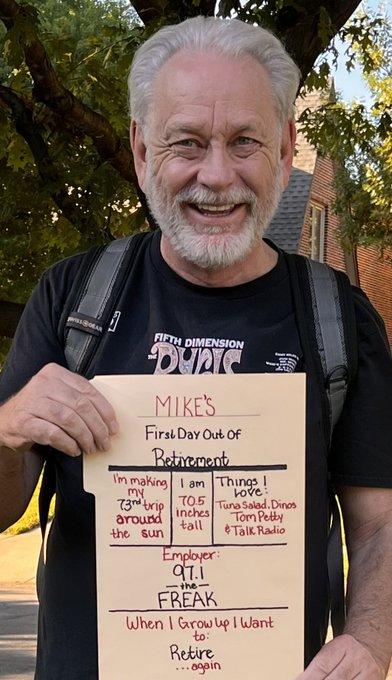 SWISSGEAR
FIFTH DIMENSION
THE BYRDS
MIKE'S
First Day Out Of
Retirement
I'm making
my
73rd trip
around
the sun
I am
70.5
inches
tall
Things I
Love:
Tuna Salad, Dinos
Tom Petty
& Talk Radio
Employer:
97.1
the
FREAK
When I Grow Up I Want
to:
Retire
...again